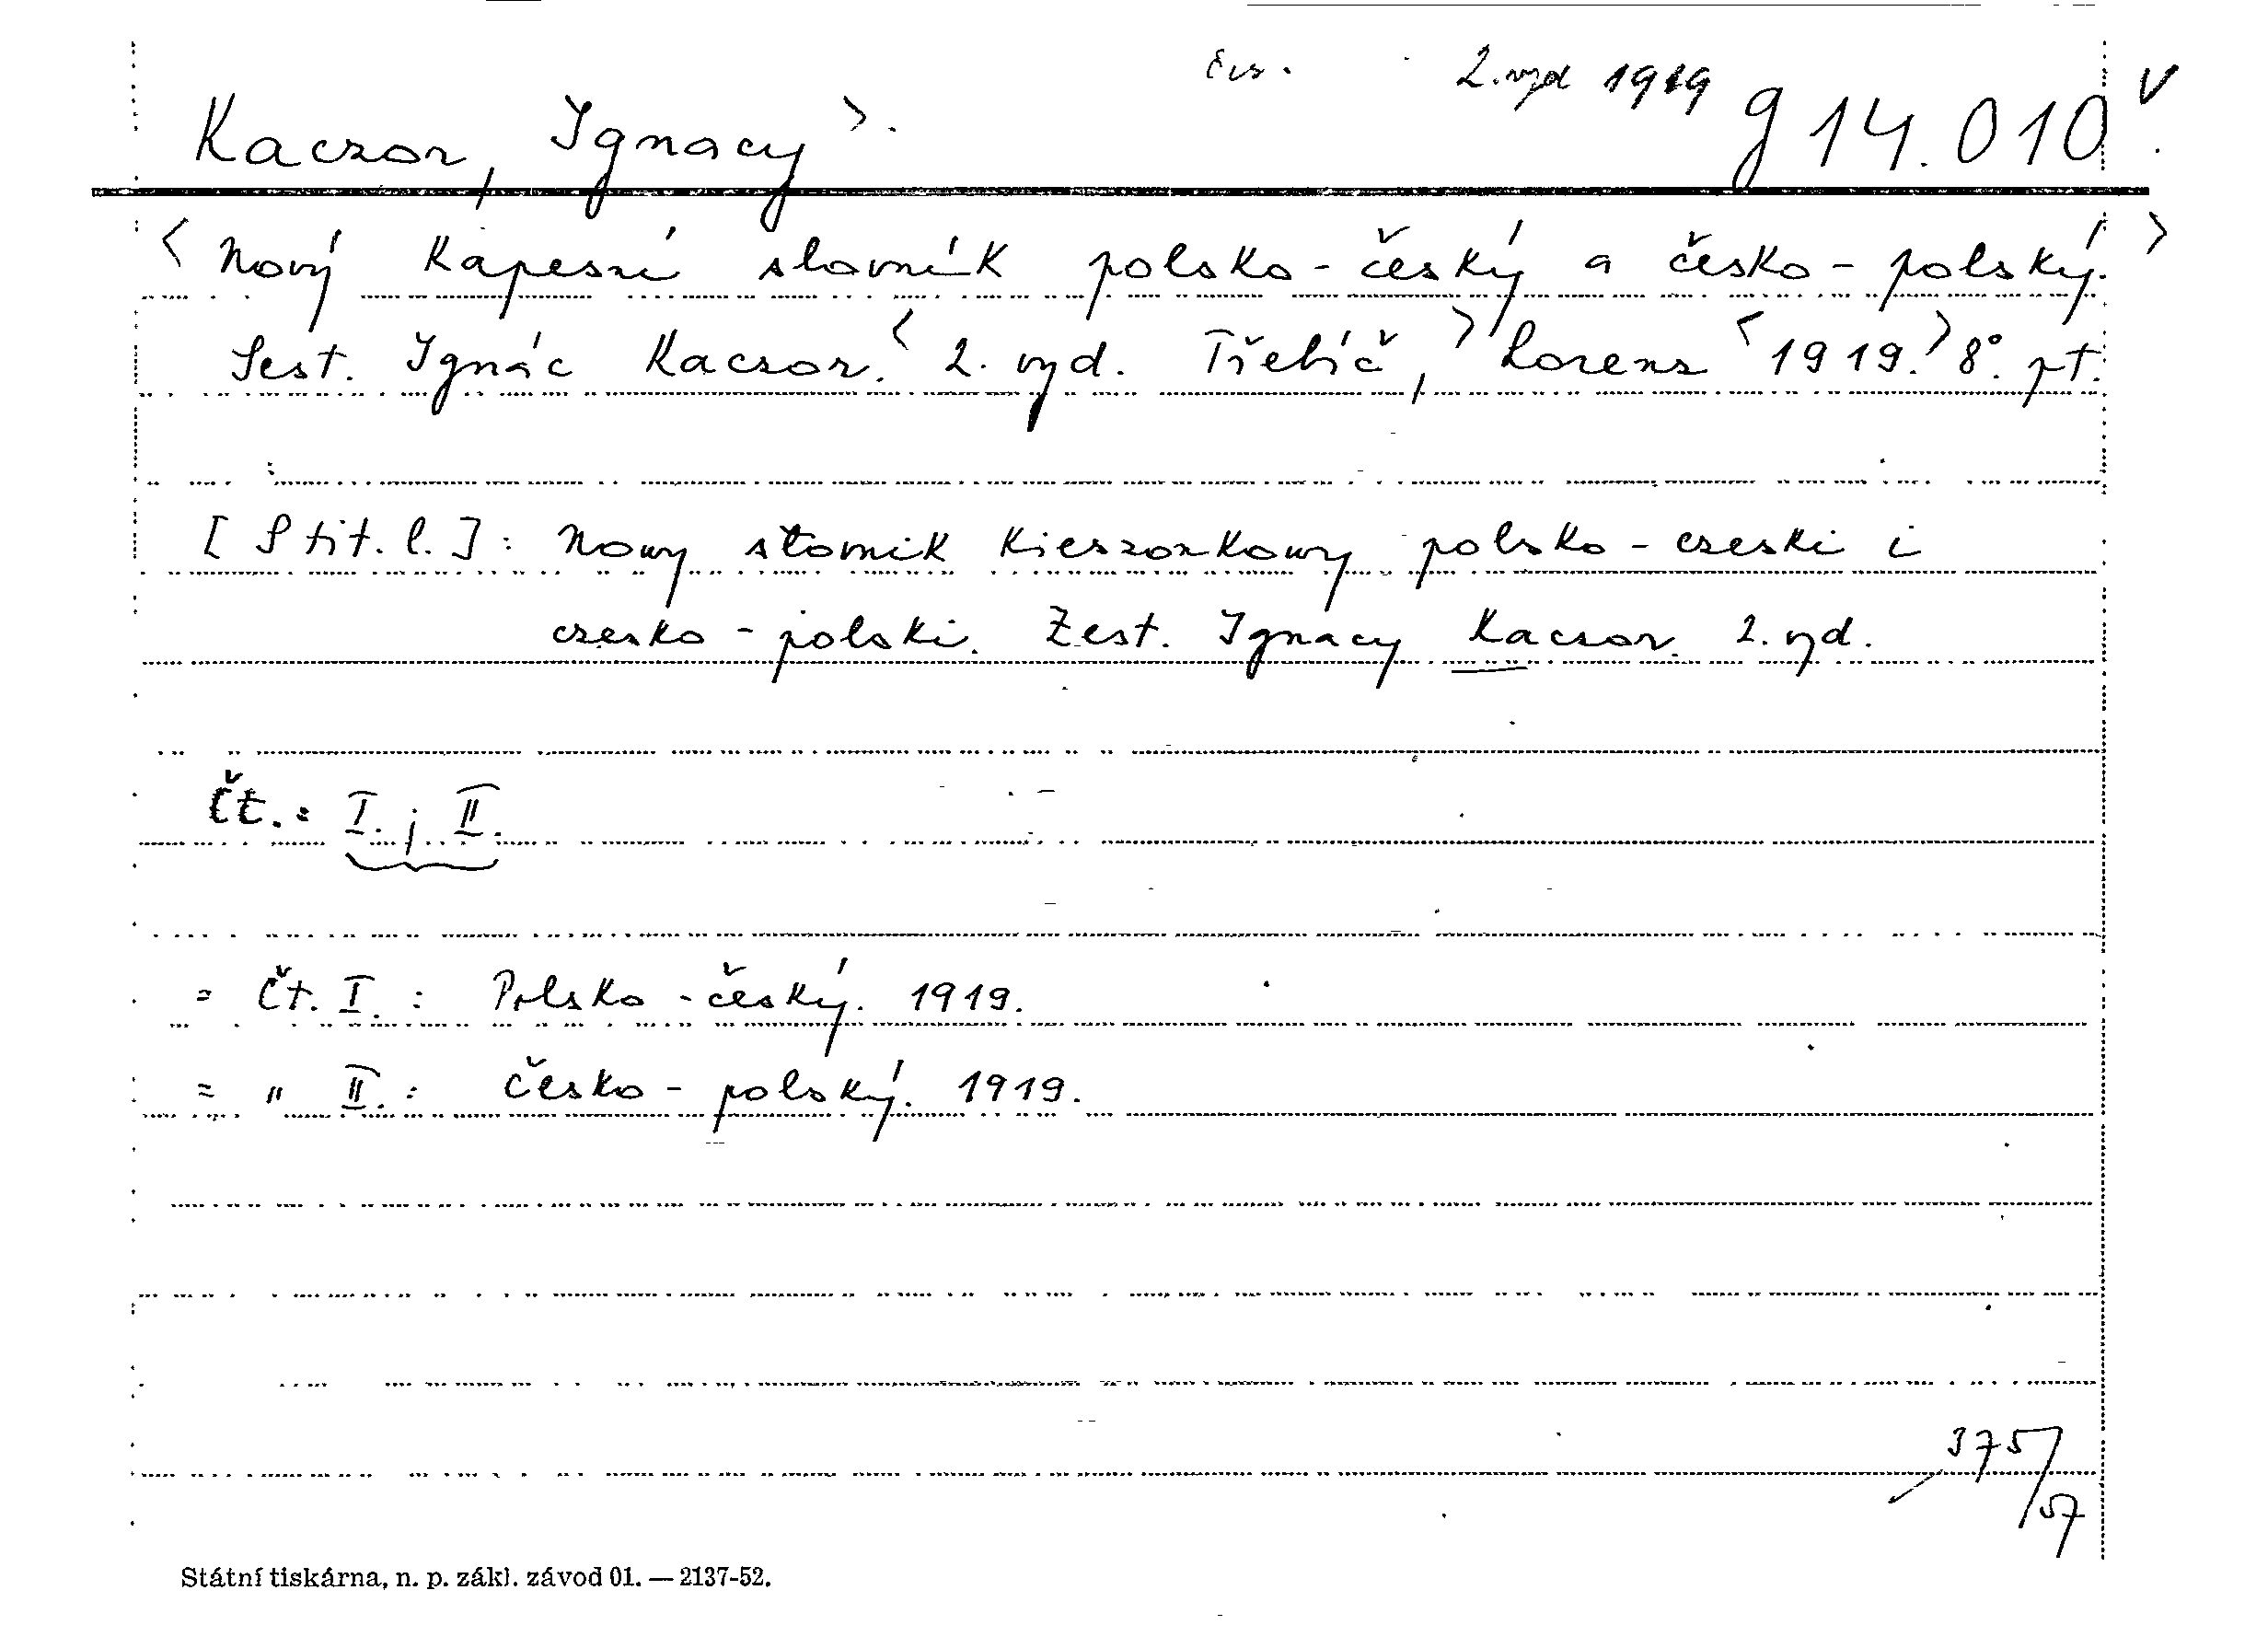 2. vyd 1919
Kaczor, Ignacy >. g 14.010 v
< Nový kapesní slovník polsko-český a česko-polský. >
Sest. Ignác Kaczor. < 2. vyd. Třebíč, > Lorenz < 1919. > 8°. pt.
[S tit. l.]: Nowy słownik kieszonkowy polsko-czeski i
czesko-polski. Zest. Ignacy Kaczor. 2. vyd.
Čt.: I. ; II.
= Čt. I. : Polsko-český. 1919.
= " II. : Česko-polský. 1919.
375/57
Státní tiskárna, n. p. zákl. závod 01. — 2137-52.